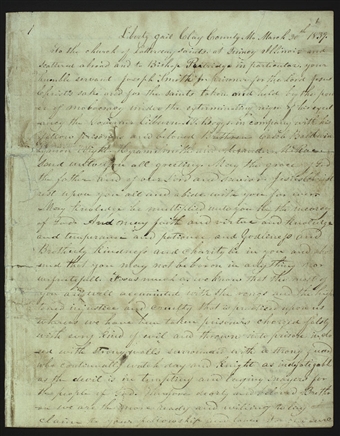 Liberty Jail Clay County Mo March 20th 1839.
To the church of Latterday saints at Quincy Illinois and
scattered abroad and to Bishop Partridge in particular, your
humble servant Joseph Smith Jr prisoner for the Lord Jesus
Christs sake and for the saints taken and held by the power
of mobocracy under the exterminating reign of his
excelancy the
fellow prisoners and beloved Brethren Caleb Baldwin
Lyman Wight Hyrum Smith and Alexander McRae
Send unto you all greeting. May the grace of God
the father and of our Lord and savior Jesus Christ
rest upon you all and abide with you for ever
May knoledge be multiplied unto you by the mercy
of God And may faith and virtue and knowledge
and temperance and patience and Godliness and
Brotherly kindness and charity be in you and
abound that you may not be baron in any thing nor
unfrutefull
you are well acquainted with the rongs and the high
toned injustice and cruelty that is
whereas we have been taken prisoners charged falsly
with evry kind of evil and thrown into prison
inclosed with strong walls surrounded with a strong guard
who continually watch day and knight as indefatigable
as the devil is in tempting and laying snayers for
the people of God. Therefore dearly and beloved
Brethren we are the more ready and willing to lay
claim to your fellowship and love